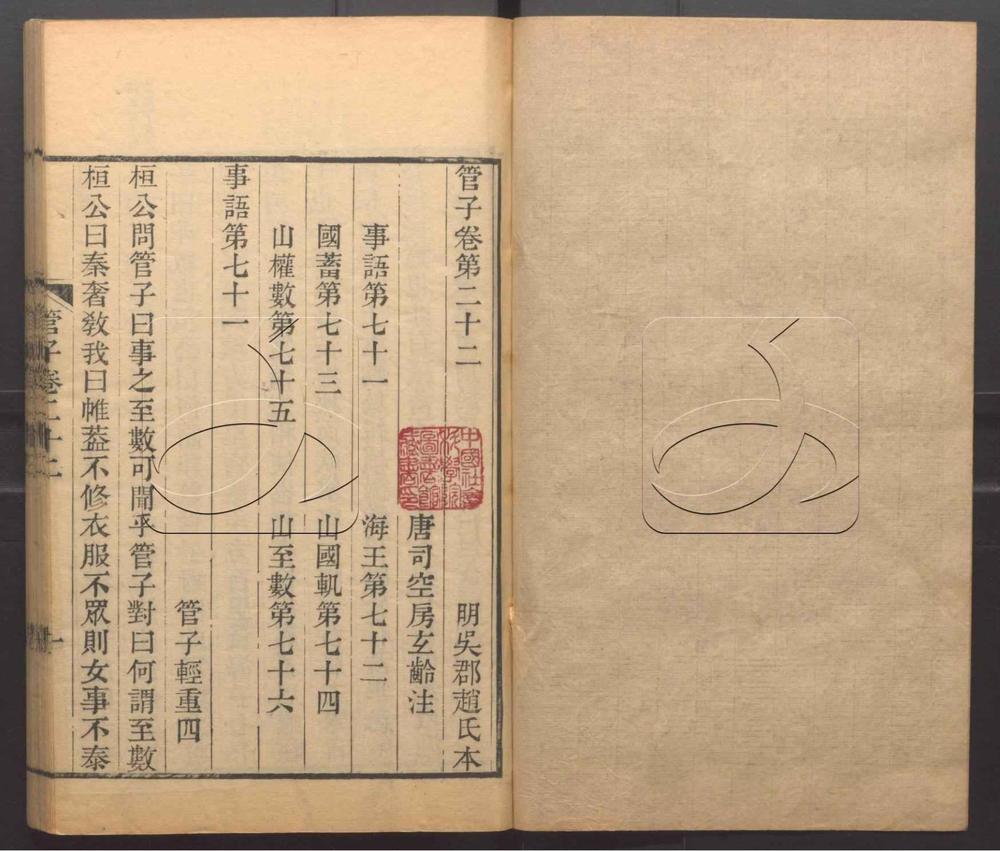 管子卷第二十二 明吳郡趙氏本
唐司空房玄齡注
事語第七十一 海王第七十二
國蓄第七十三 山國軌第七十四
山權數第七十五 山至數第七十六
管子輕重四
事語第七十一
桓公問管子曰事之至數可聞乎管子對曰何謂至數
桓公曰秦奢敎我曰帷葢不修衣服不眾則女事不泰
管子卷二十二
一